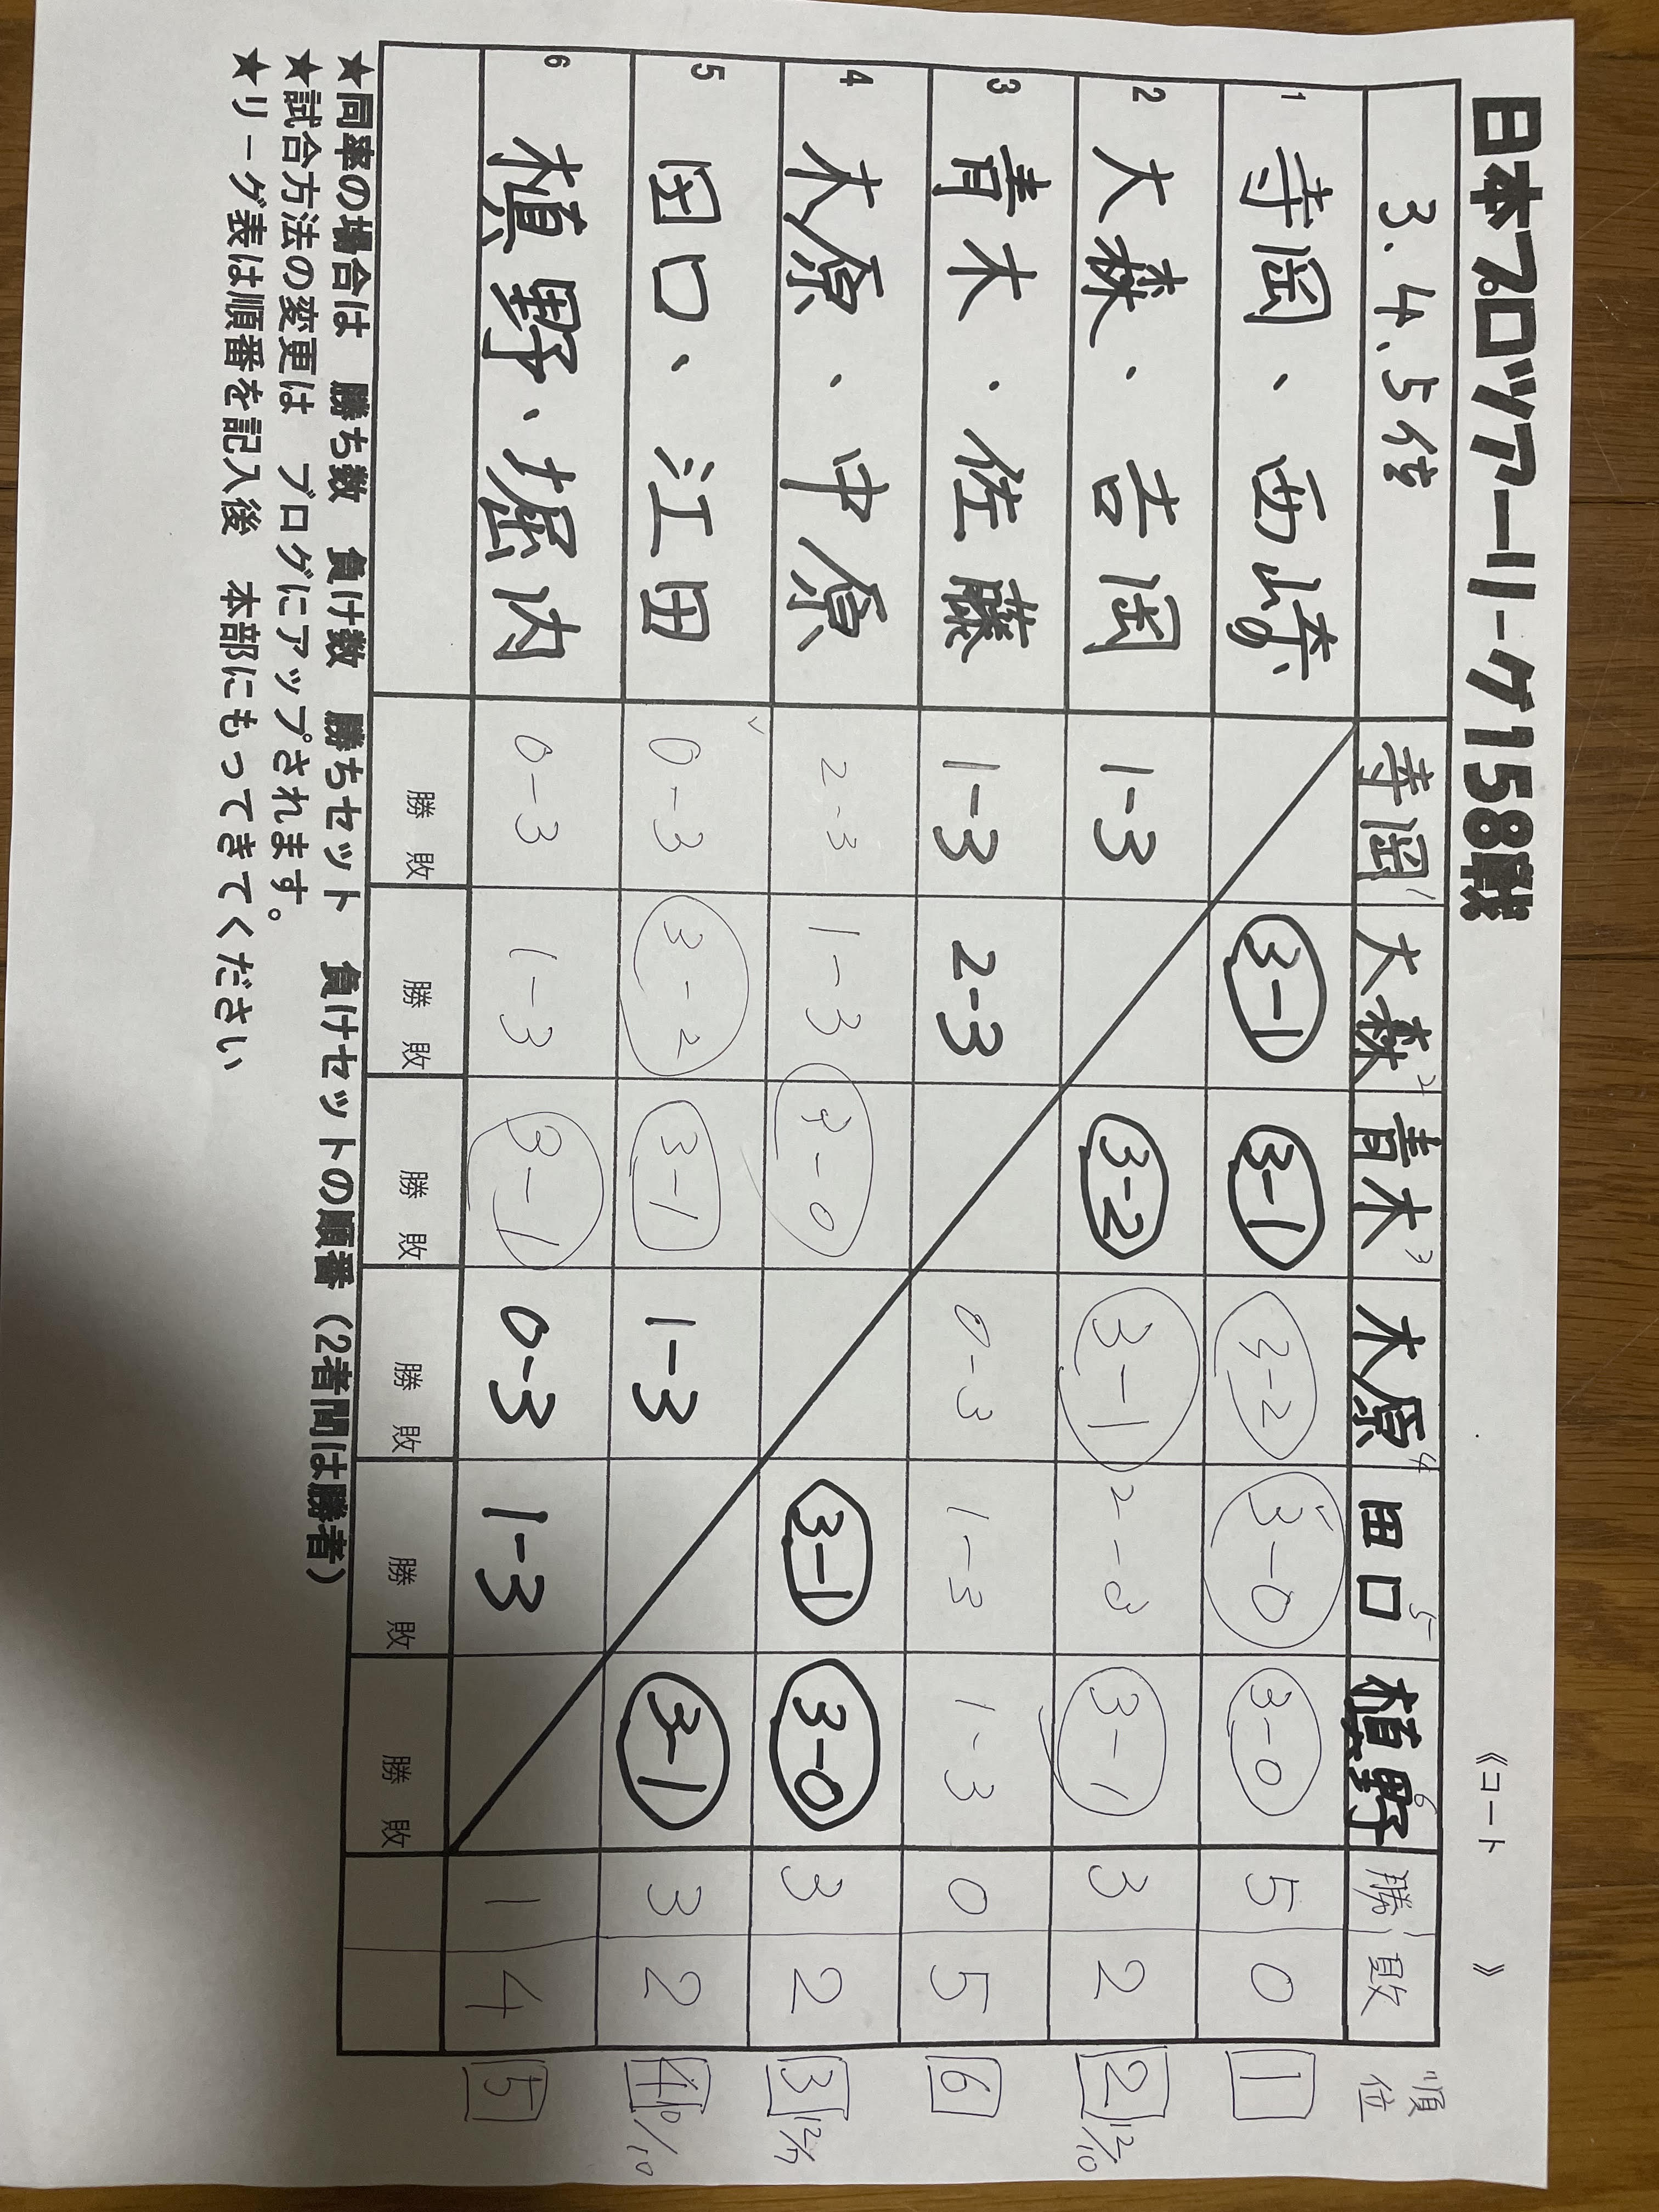 日本プロツアーリーグ158戦
《コート 》
3.4.5位 寺岡1 大森2 青木3 木原4 田口5 植野6 勝 敗 順位
1 寺岡、西崎 3-1 3-1 3-2 3-0 3-0 5 0 1
2 大森、吉岡 1-3 3-2 3-1 2-3 3-1 3 2 2 12/10
3 青木、佐藤 1-3 2-3 0-3 1-3 1-3 0 5 6
4 木原、中原 2-3 1-3 3-0 3-1 3-0 3 2 3 12/7
5 田口、江田 0-3 3-2 3-1 1-3 3-1 3 2 4 10/10
6 植野、堀内 0-3 1-3 3-1 0-3 1-3 1 4 5
勝 敗 勝 敗 勝 敗 勝 敗 勝 敗 勝 敗
★同率の場合は 勝ち数 負け数 勝ちセット 負けセットの順番（2者間は勝者）
★試合方法の変更は ブログにアップされます。
★リーグ表は順番を記入後 本部にもってきてください